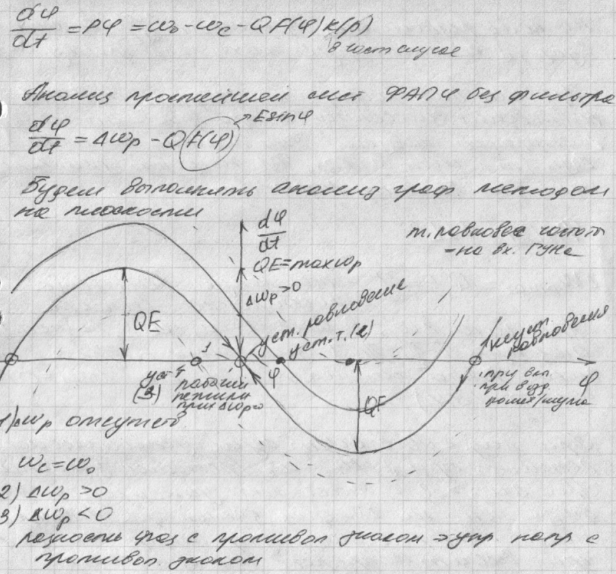 dφ/dt = Pφ = ω₀ - ω_c - QF(φ)K(p)
в част случае
Анализ простейшей сист ФАПЧ без фильтра
dφ/dt = Δω_p - QF(φ)
E sin φ
Будем выполнять анализ граф методом
на плоскости
dφ/dt
т. равновес частот
- на вх. ГУНа
QE = max ω_p
Δω_p > 0
QE
уст. равновесие
уст. т. (2)
1
неуст.
равновесия
уст
(3)
рабочий
режим
при Δω_p=0
φ
QE
при вкл
φ
1) Δω_p отсутств
ω_c = ω₀
2) Δω_p > 0
3) Δω_p < 0
разность фаз с противоп знаком → упр напр с
противоп знаком